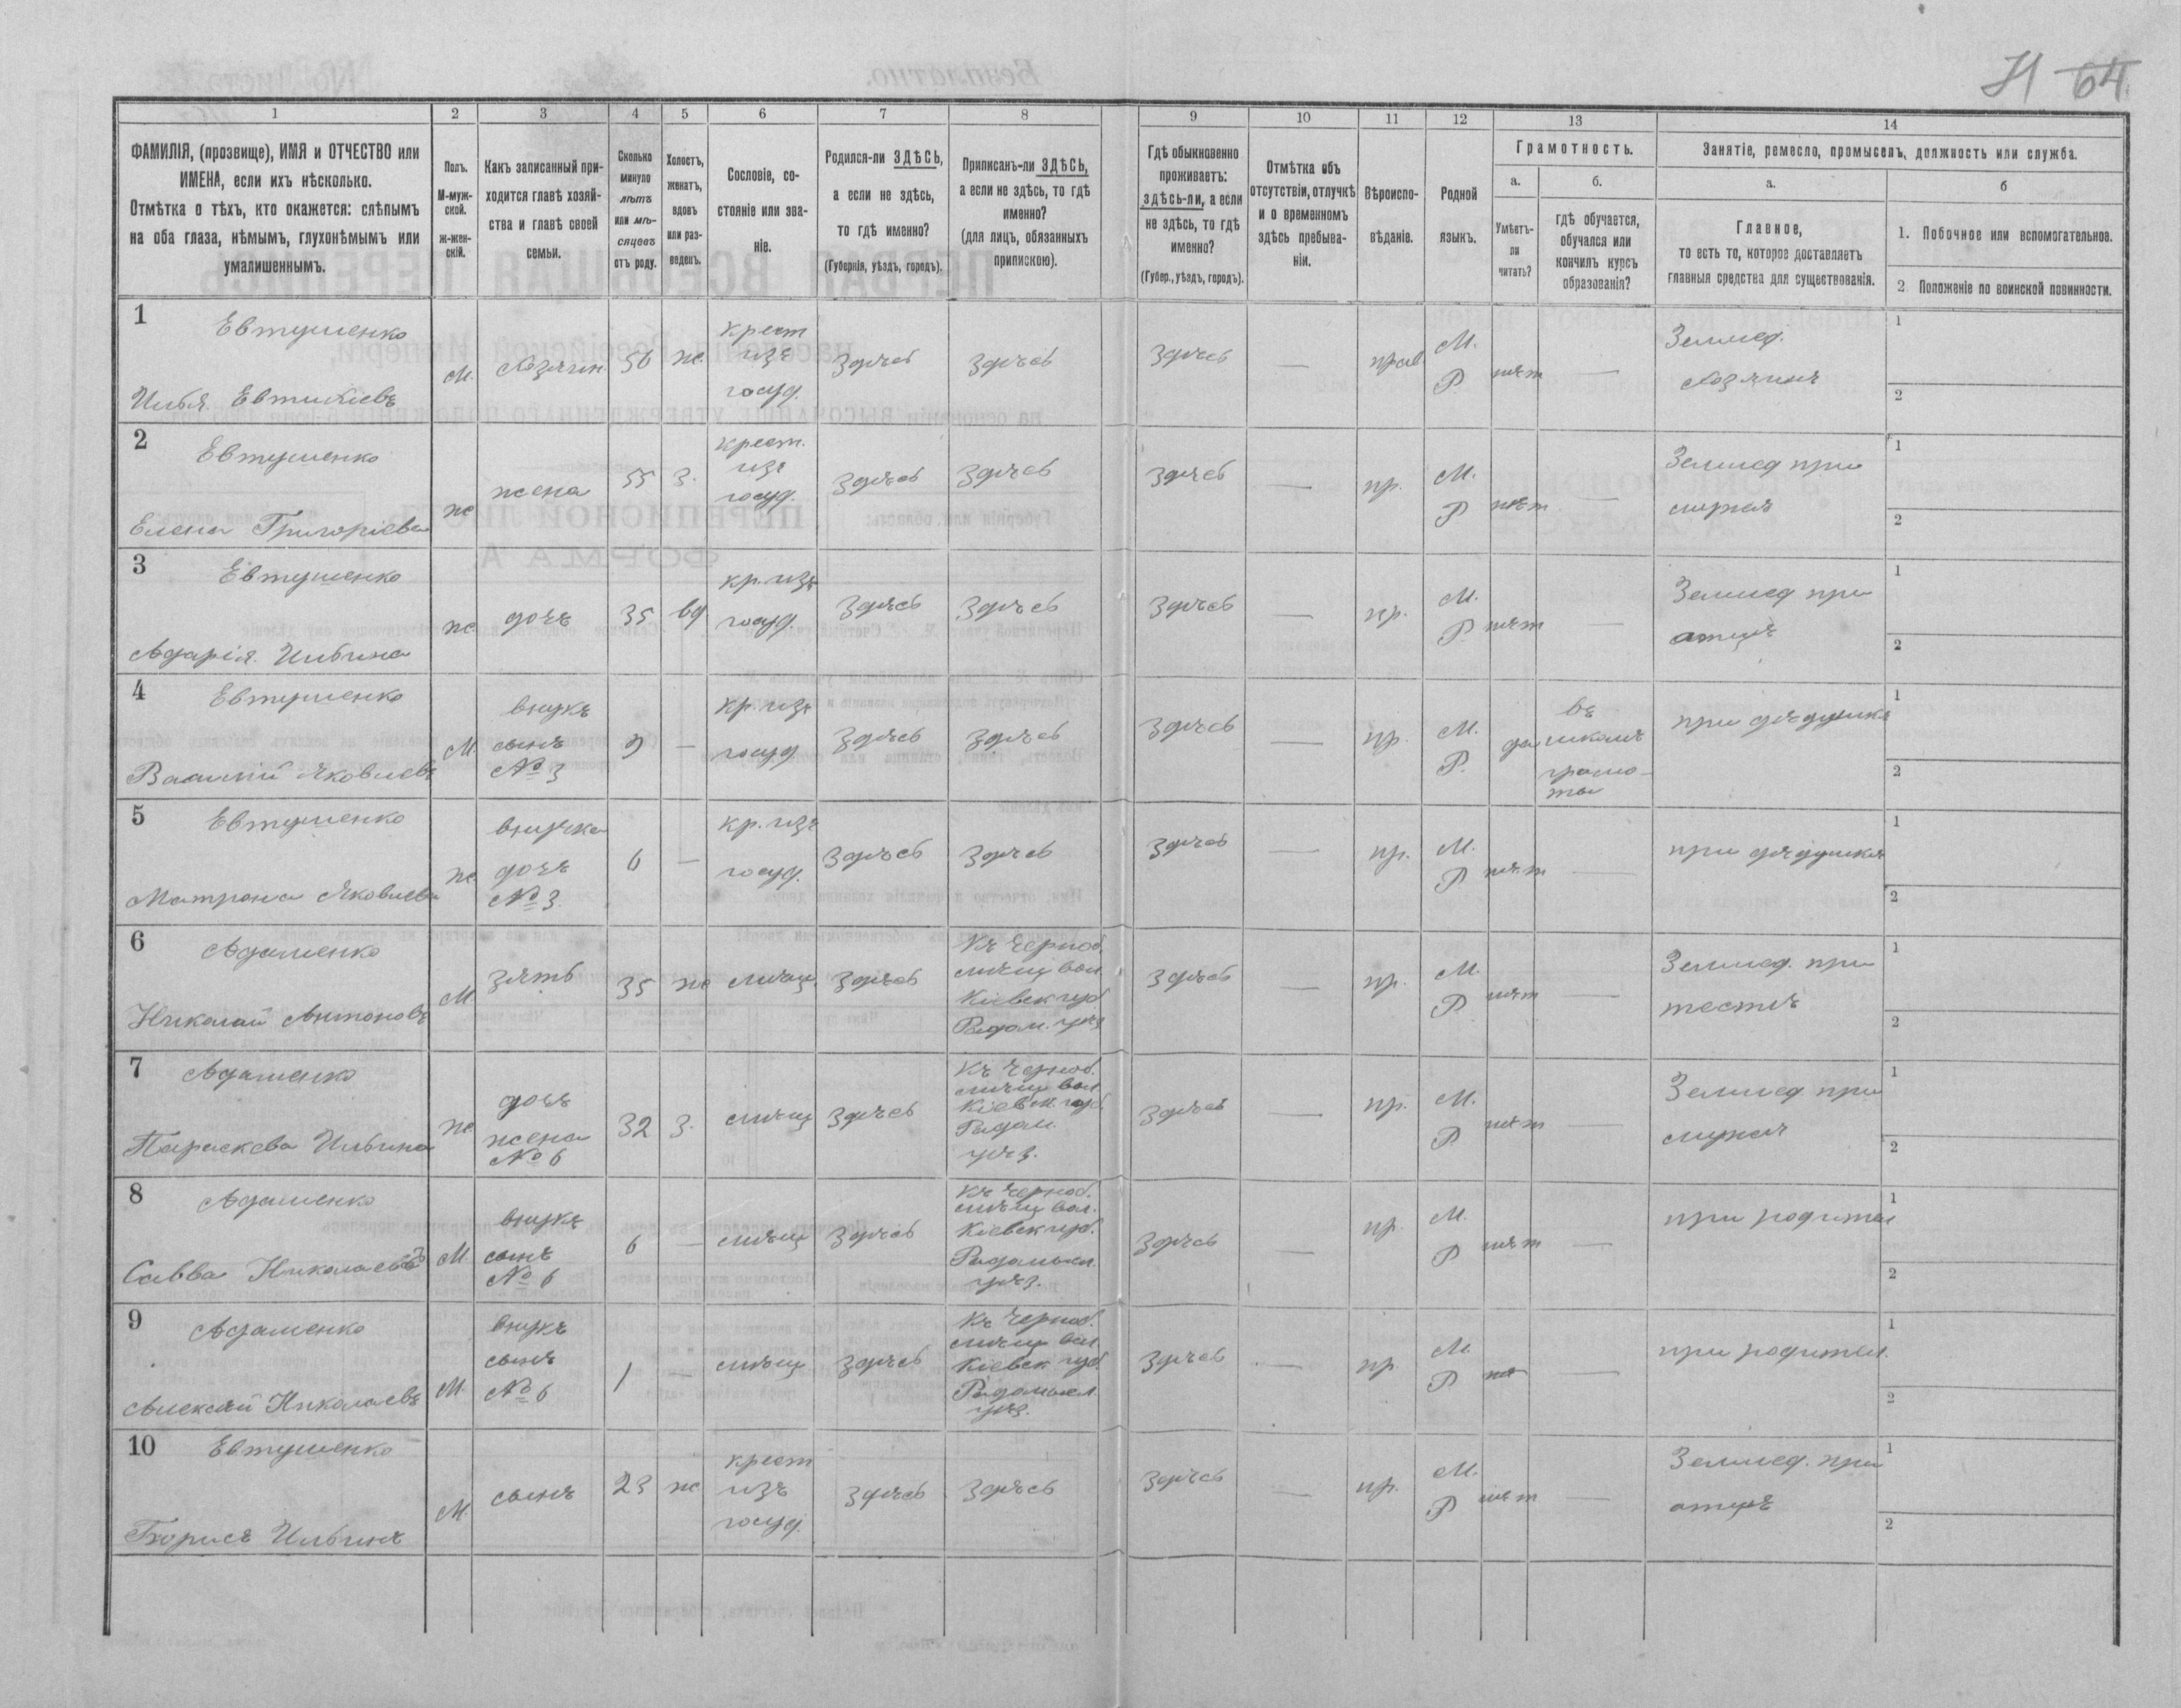 И 64
1 2 3 4 5 6 7 8 9 10 11 12 13 14
ФАМИЛІЯ, (прозвище), ИМЯ и ОТЧЕСТВО или ИМЕНА, если ихъ нѣсколько.
Отмѣтка о тѣхъ, кто окажется: слѣпымъ на оба глаза, нѣмымъ, глухонѣмымъ или умалишеннымъ.
Полъ. М-муж-ской. ж-жен-скій.
Какъ записанный при-ходится главѣ хозяй-ства и главѣ своей семьи.
Сколько минуло лѣтъ или мѣ-сяцевъ отъ роду.
Холостъ, женатъ, вдовъ или раз-веденъ.
Сословіе, со-стояніе или зва-ніе.
Родился-ли ЗДѢСЬ, а если не здѣсь, то гдѣ именно? (Губернія, уѣздъ, городъ).
Приписанъ-ли ЗДѢСЬ, а если не здѣсь, то гдѣ именно? (для лицъ, обязанныхъ припискою).
Гдѣ обыкновенно проживаетъ: ЗДѢСЬ-ЛИ, а если не здѣсь, то гдѣ именно? (Губер., уѣздъ, городъ).
Отмѣтка объ отсутствіи, отлучкѣ и о временномъ здѣсь пребыва-ніи.
Вѣроиспо-вѣданіе.
Родной языкъ.
Грамотность.
а. Умѣетъ-ли читать?
б. гдѣ обучается, обучался или кончилъ курсъ образованія?
Занятіе, ремесло, промыселъ, должность или служба.
а. Главное, то есть то, которое доставляетъ главныя средства для существованія.
б 1. Побочное или вспомогательное.
2 Положеніе по воинской повинности.
1 Евтушенко Илья Евтихіевъ М. Хозяин 56 ж. крест изъ госуд. Здѣсь Здѣсь Здѣсь — прав М. Р. нѣт — Землед. Хозяинъ 1 2
2 Евтушенко Елена Григоріева ж жена 55 З. крест. изъ госуд. Здѣсь Здѣсь Здѣсь — пр. М. Р нѣт — Землед при мужѣ 1 2
3 Евтушенко Дарія Ильина ж. дочь 35 вд кр. изъ госуд. Здѣсь Здѣсь Здѣсь — пр. М. Р. нѣт — Землед при отцѣ 1 2
4 Евтушенко Василій Яковлевъ М. внукъ сынъ № 3 — кр. изъ госуд Здѣсь Здѣсь Здѣсь — пр. М. Р. да въ школѣ грамо-ты при дѣдушкѣ 1 2
5 Евтушенко Матрона Яковлева ж. внучка дочь № 3 6 — кр. изъ госуд. Здѣсь Здѣсь Здѣсь — пр. М. Р нѣт — при дѣдушкѣ 1 2
6 Адаменко Николай Антоновъ М зять 35 ж мѣщ. Здѣсь Къ Черноб. мѣщ вол. Кіевск губ Радом. уѣз Здѣсь — пр. М. Р нѣт — Землед. при тестѣ 1 2
7 Адаменко Параскева Ильина ж дочь жена № 6 32 З. мѣщ Здѣсь Къ Черноб. мѣщ вол Кіевск губ. Радом. уѣз. Здѣсь — пр. М. Р нѣт — Землед при мужѣ 1 2
8 Адаменко Савва Николаевъ М. внукъ сынъ № 6 6 — мѣщ Здѣсь Къ Черноб. мѣщ вол. Кіевск губ. Радомысл. уѣз. Здѣсь — пр. М. Р нѣт — при родител 1 2
9 Адаменко Алексѣй Николаевъ М. внукъ сынъ № 6 1 — мѣщ Здѣсь Къ Черноб. мѣщ вол Кіевск губ. Радомысл. уѣз. Здѣсь — пр. М. Р — при родител. 1 2
10 Евтушенко Борисъ Ильинъ М. сынъ 23 ж крест изъ госуд. Здѣсь Здѣсь Здѣсь — пр. М. Р нѣт — Землед. при отцѣ 1 2